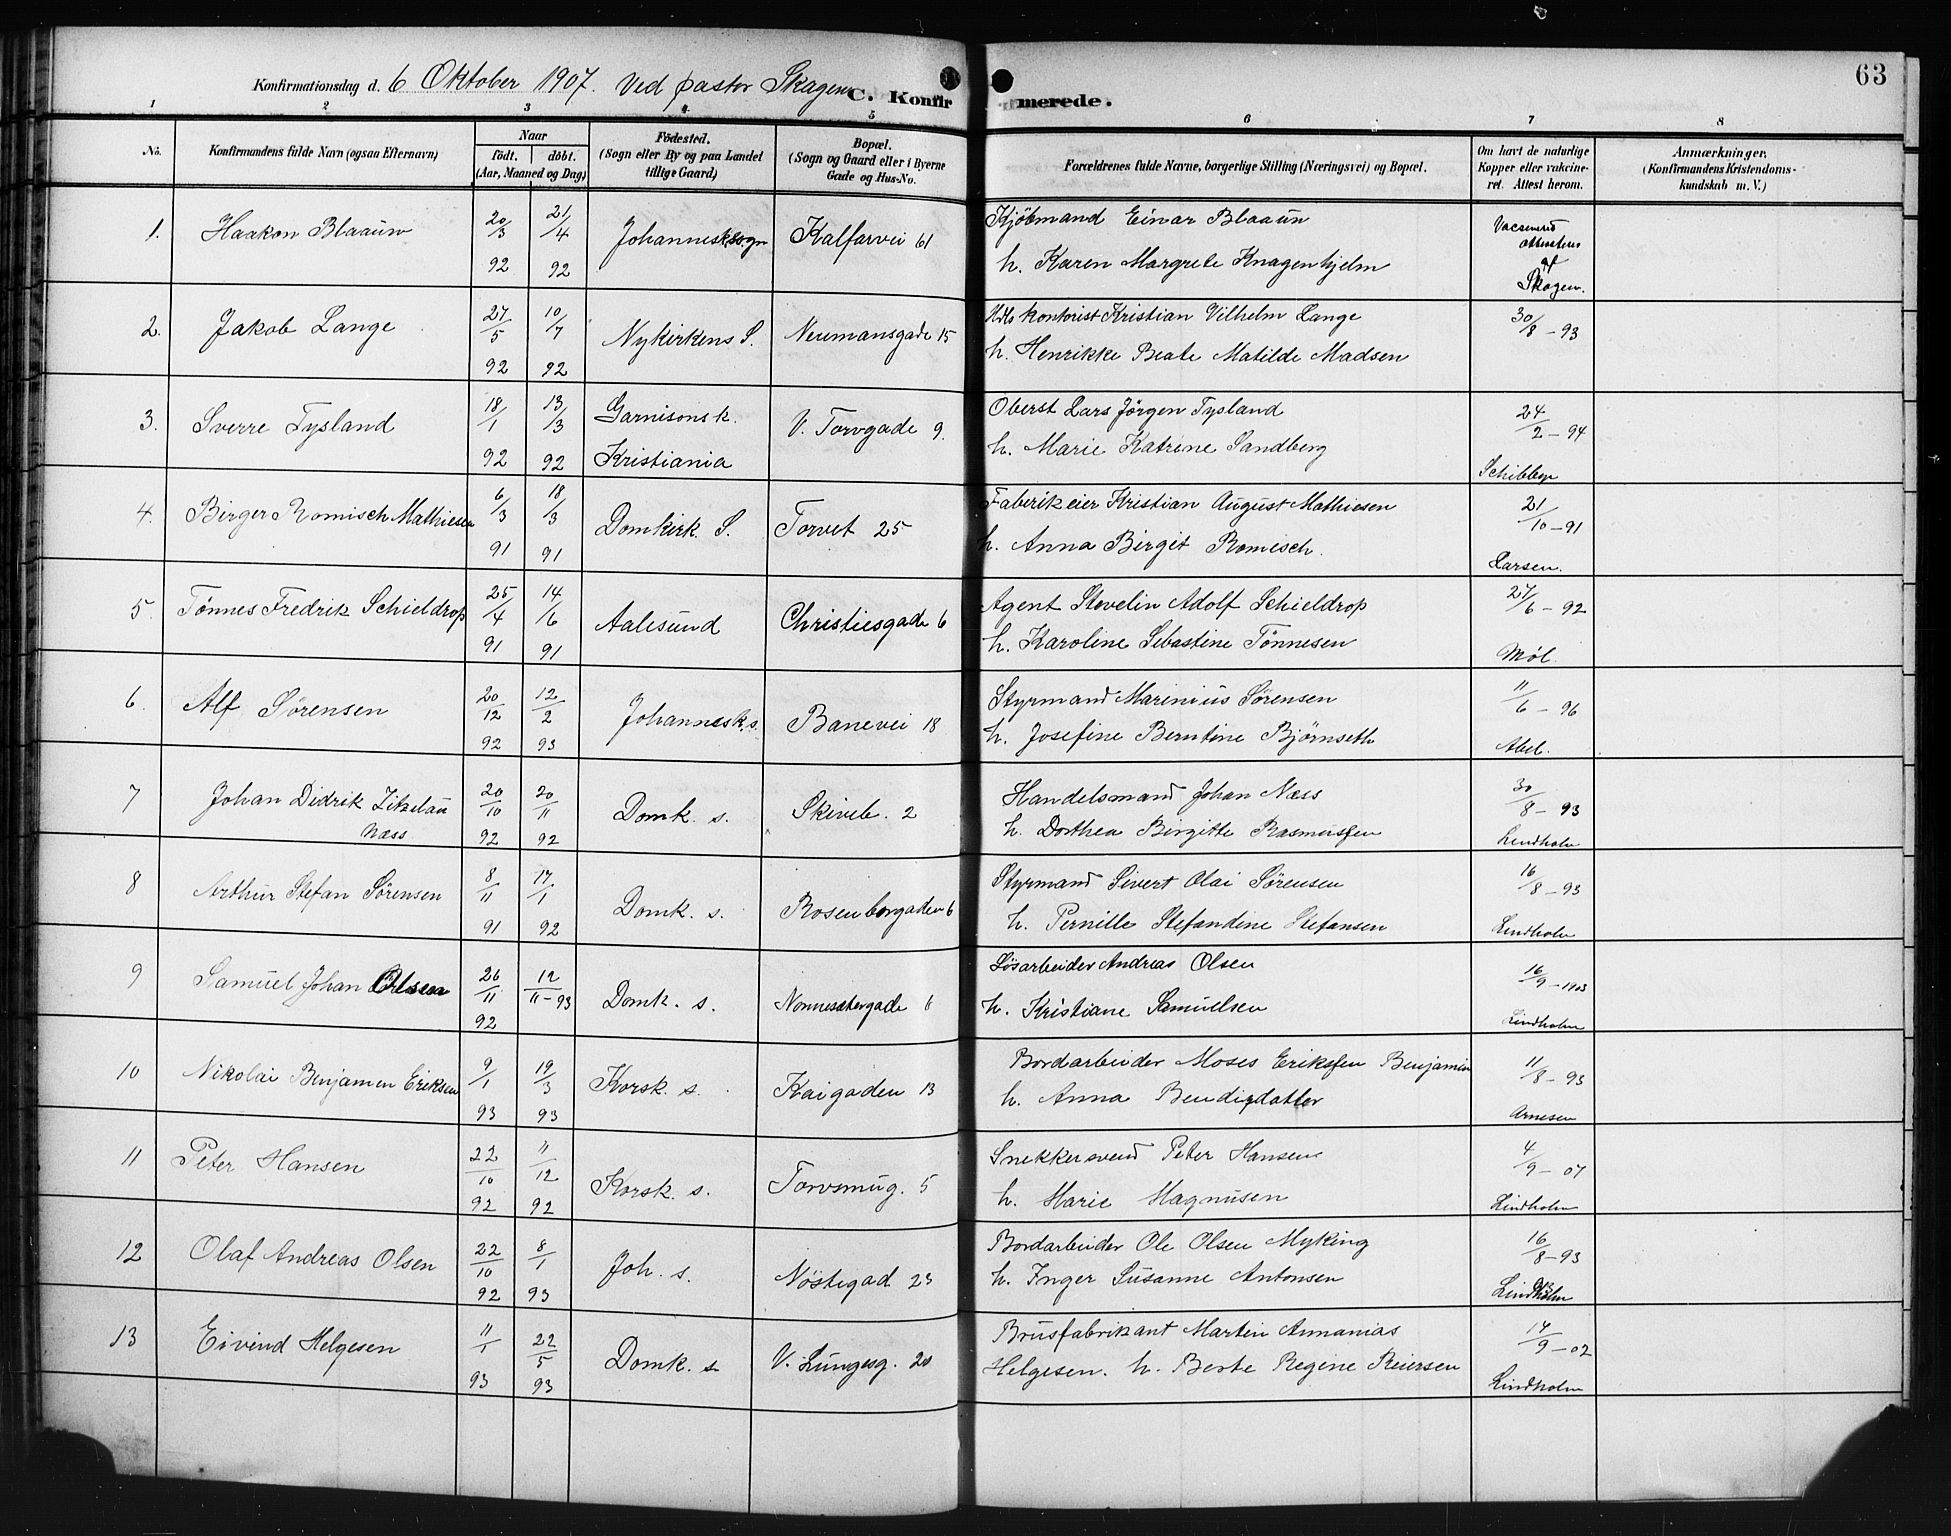 63
Konfirmationsdag d. 6 Oktober 1907. Ved pastor Skagen
C. Konfirmerede.
1 2 3 4 5 6 7 8
No. Konfirmandens fulde Navn (ogsaa Efternavn) Naar födt. döbt. (Aar, Maaned og Dag) Födested. (Sogn eller By og paa Landet tillige Gaard) Bopæl. (Sogn og Gaard eller i Byerne Gade og Hus-No. Forældrenes fulde Navne, borgerlige Stilling (Næringsvei) og Bopæl. Om havt de naturlige Kopper eller vakcineret. Attest herom. Anmærkninger. (Konfirmandens Kristendomskundskab m. V.)
1. Haakon Blaauw 20/3 92 21/4 92 Johannesksogn Kalfarvei 61 Kjøbmand Einar Blaauw
h. Karen Margrete Knagenhjelm Skagen.
2. Jakob Lange 27/5 92 10/7 92 Nykirkens S. Neumansgade 15 kontorist Kristian Vilhelm Lange 30/8 - 93
h. Henrikke Beate Matilde Madsen
3. Sverre Tysland 18/1 92 13/3 92 Garnisonsk. Kristiania V. Torvgade 9. Oberst Lars Jörgen Tysland 24/2 - 94
h. Marie Katrine Sandberg
4. Birger Romisch Mathiesen 6/3 91 18/3 91 Domkirk. S. Torvet 25 Faberikeier Kristian August Mathiesen 21/10 - 91
h. Anna Birgit Romisch. Larsen.
5. Tönnes Fredrik Schieldrop 25/4 91 14/6 91 Aalesund Christiesgade 6 Agent Stevelin Adolf Schieldrop 27/6 - 92
h. Karoline Sebastine Tönnesen Møl.
6. Alf Sørensen 20/12 92 12/2 93 Johannesk.s. Banevei 18 Styrmand Marinius Sørensen 11/6 - 96
h. Josefine Berntine Björnseth Abel.
7 Johan Didrik Zitzelau Næss 20/10 92 20/11 92 Domk. s. Skiveb. 2 Handelsmand Johan Næss 30/8 - 93
h. Dorthea Birgitte Rasmussen Lindholm
8 Arthur Stefan Sørensen 8/11 91 17/1 92 Domk. s. Rosenborgaden 6 Styrmand Sivert Olai Sørensen 16/8 - 93
h. Pernille Stefandine Stefansen Lindholm
9 Samuel Johan Olsen 26/11 92 12/11 - 93 Domk. s. Nonnesætergade Løsarbeider Andreas Olsen 16/9 - 1903
h. Kristiane Samuelsen Lindholm
10 Nikolai Benjamen Eriksen 9/1 93 19/3 93 Korsk. s. Kaigaden 13 Bordarbeider Moses Eriksen Benjamin 11/8 - 93
h. Anna Bendigdatter Arnesen
11 Peter Hansen 22/10 92 11/12 92 Korsk. s. Torvsmug. 5 Snekkersvend Peter Hansen 4/9 - 07
h. Marie Magnusen Lindholm
12 Olaf Andreas Olsen 22/10 92 8/1 93 Joh. s. Nöstegad 23 Bordarbeider Ole Olsen Myking 16/8 - 93
h. Inger Susanne Antonsen Lindholm
13 Eivind Helgesen 11/1 93 22/5 93 Domk. s. V. Lungesg. 20 Brusfabrikant Martin Annanias 14/9 - 02
Helgesen. h. Berte Regine Reiersen Lindholm